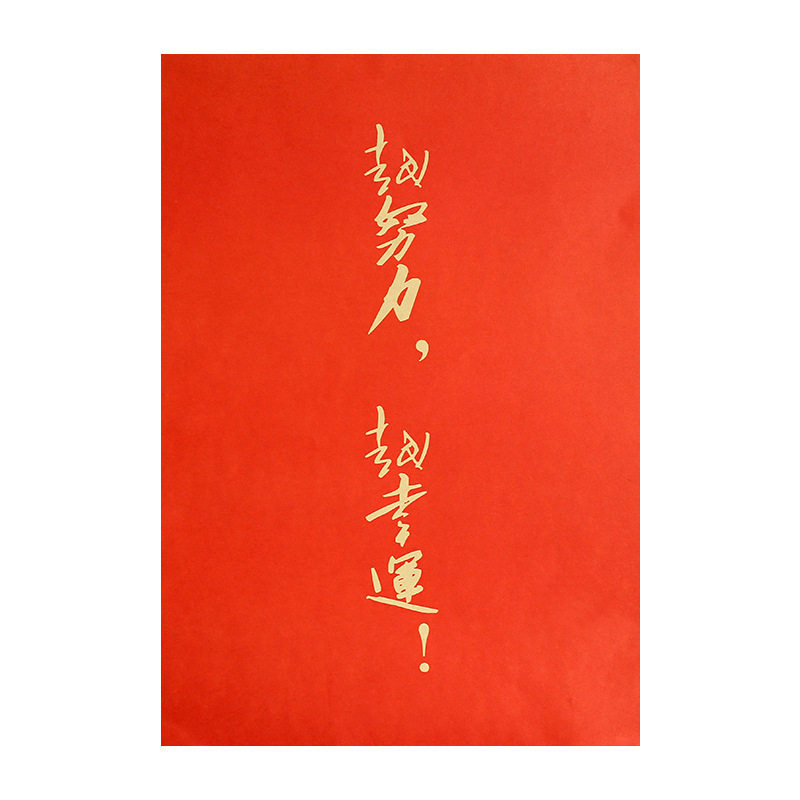 越努力，越幸運！